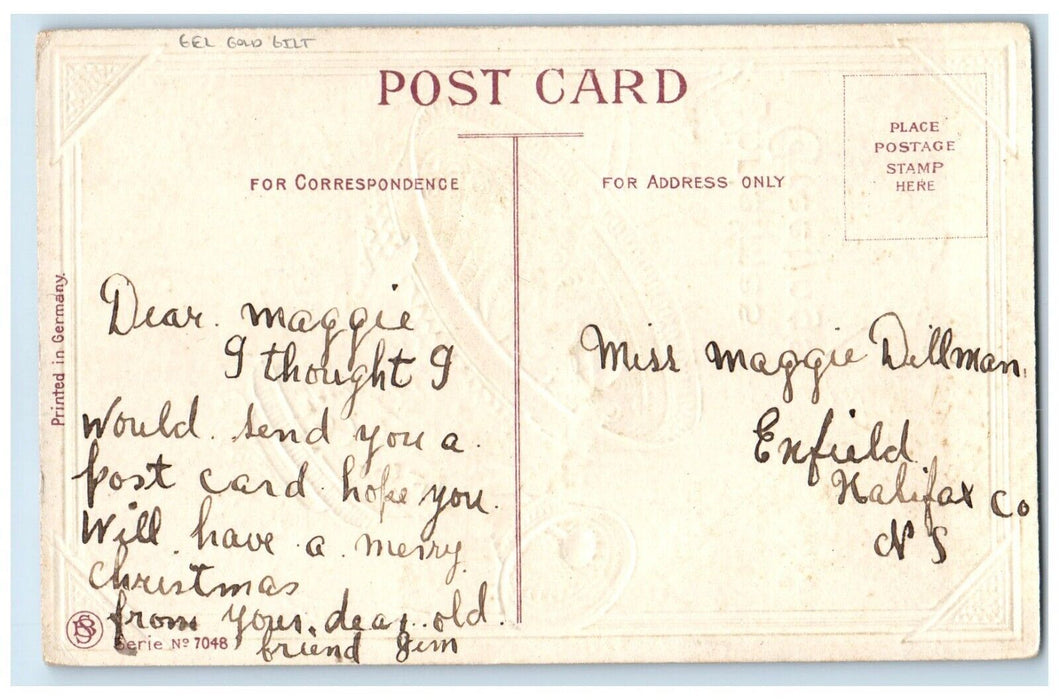 GEL GOLD GILT
POST CARD
FOR CORRESPONDENCE
FOR ADDRESS ONLY
PLACE
POSTAGE
STAMP
HERE
Printed in Germany.
Dear. Maggie
I thought I
Would. send you a.
post card. hope you.
Will. have. a. merry.
christmas
from your. dear. old.
friend Jim
Miss Maggie Dillman.
Enfield.
Halifax Co
N S
Serie Nº 7048